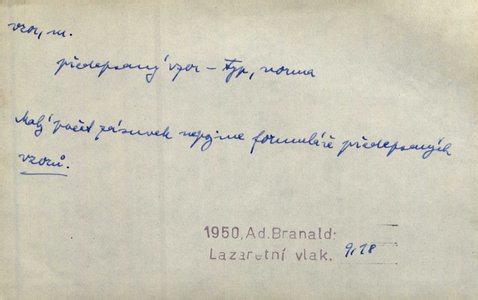 vzor, m.
předepsaný vzor – typ, norma
Malý počet zásuvek nepojme formuláře předepsaných
vzorů.
1950, Ad. Branald:
Lazaretní vlak. 9, 18